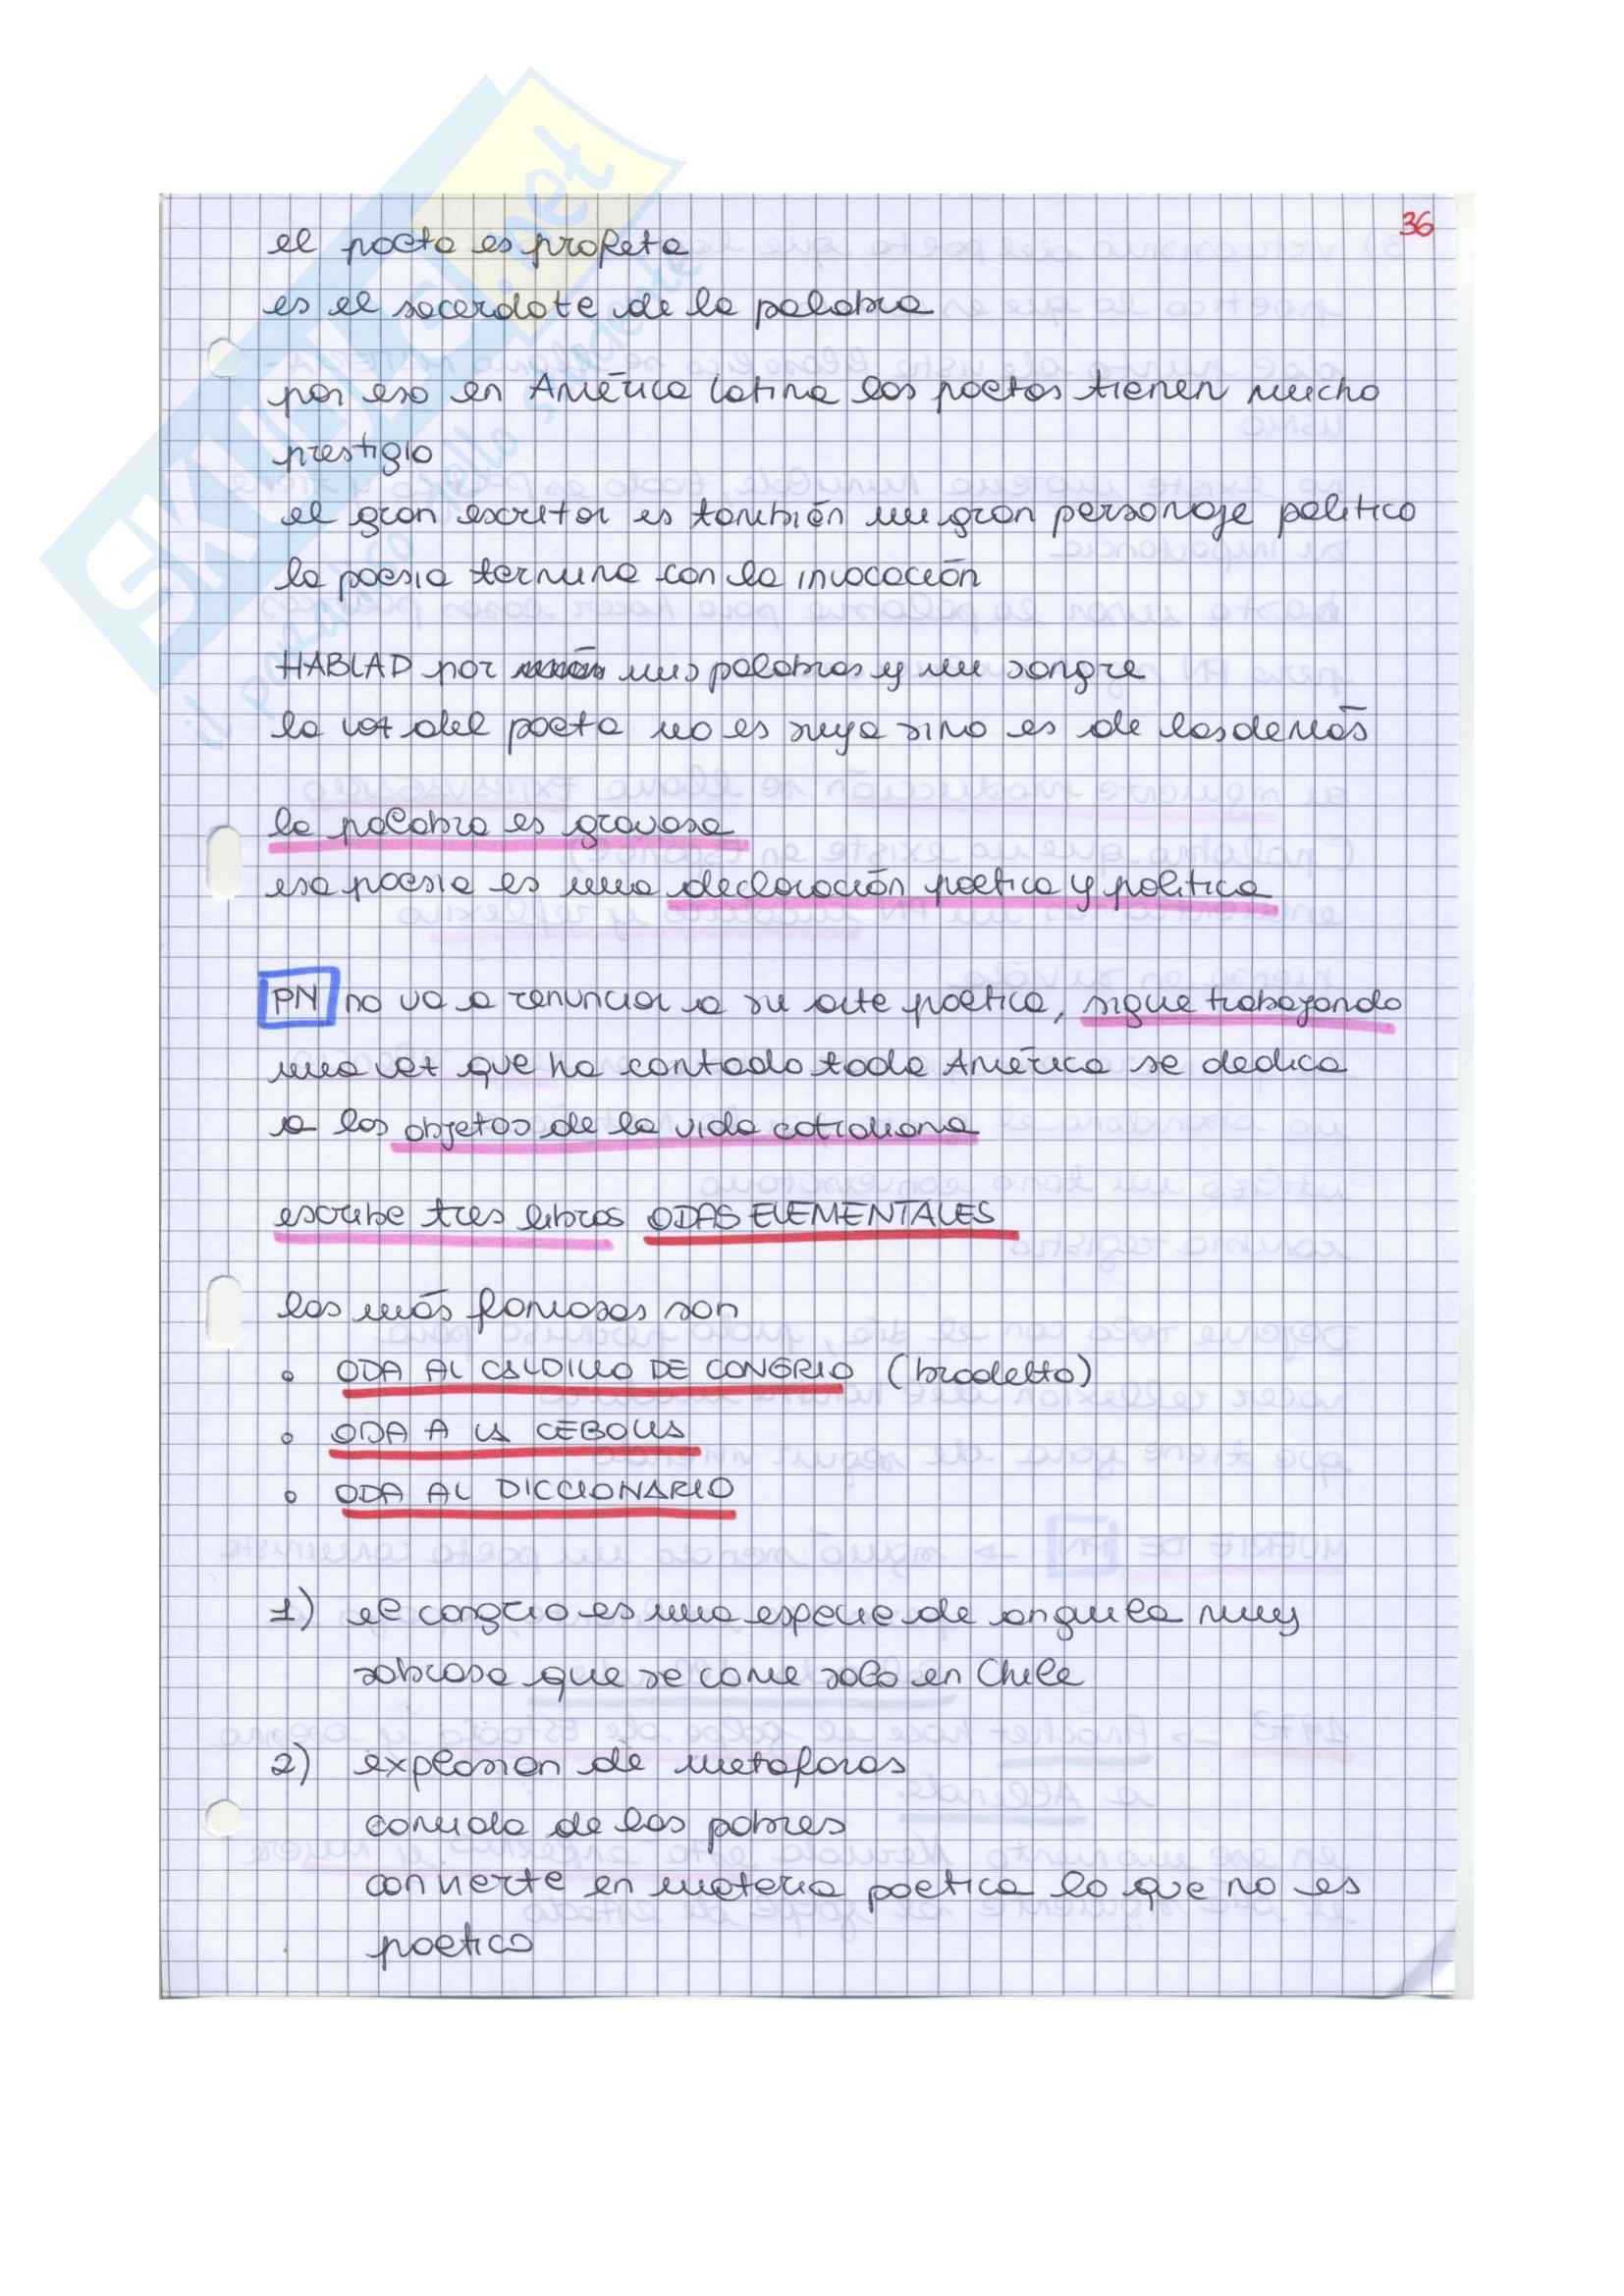 36
el poeta es profeta
es el sacerdote de la palabra
por eso en América latina los poetas tienen mucho
prestigio
el gran escritor es también un gran personaje politico
la poesia termina con la invocación
HABLAD por mis palabras y mi sangre
la voz del poeta no es suya sino es de los demás
la palabra es gravosa
esa poesia es una declaración poetica y politica
PN no va a renunciar a su arte poetica, sigue trabajando
una vez que ha contado toda América se dedica
a los objetos de la vida cotidiana
escribe tres libros ODAS ELEMENTALES
las más famosas son
ODA AL CALDILLO DE CONGRIO (brodetto)
ODA A LA CEBOLLA
ODA AL DICCIONARIO
1) el congrio es una especie de anguila muy
sabrosa que se come solo en Chile
2) explosion de metaforas
comida de los pobres
convierte en materia poetica lo que no es
poetico
SKUOLA.net
il paradiso dello studente